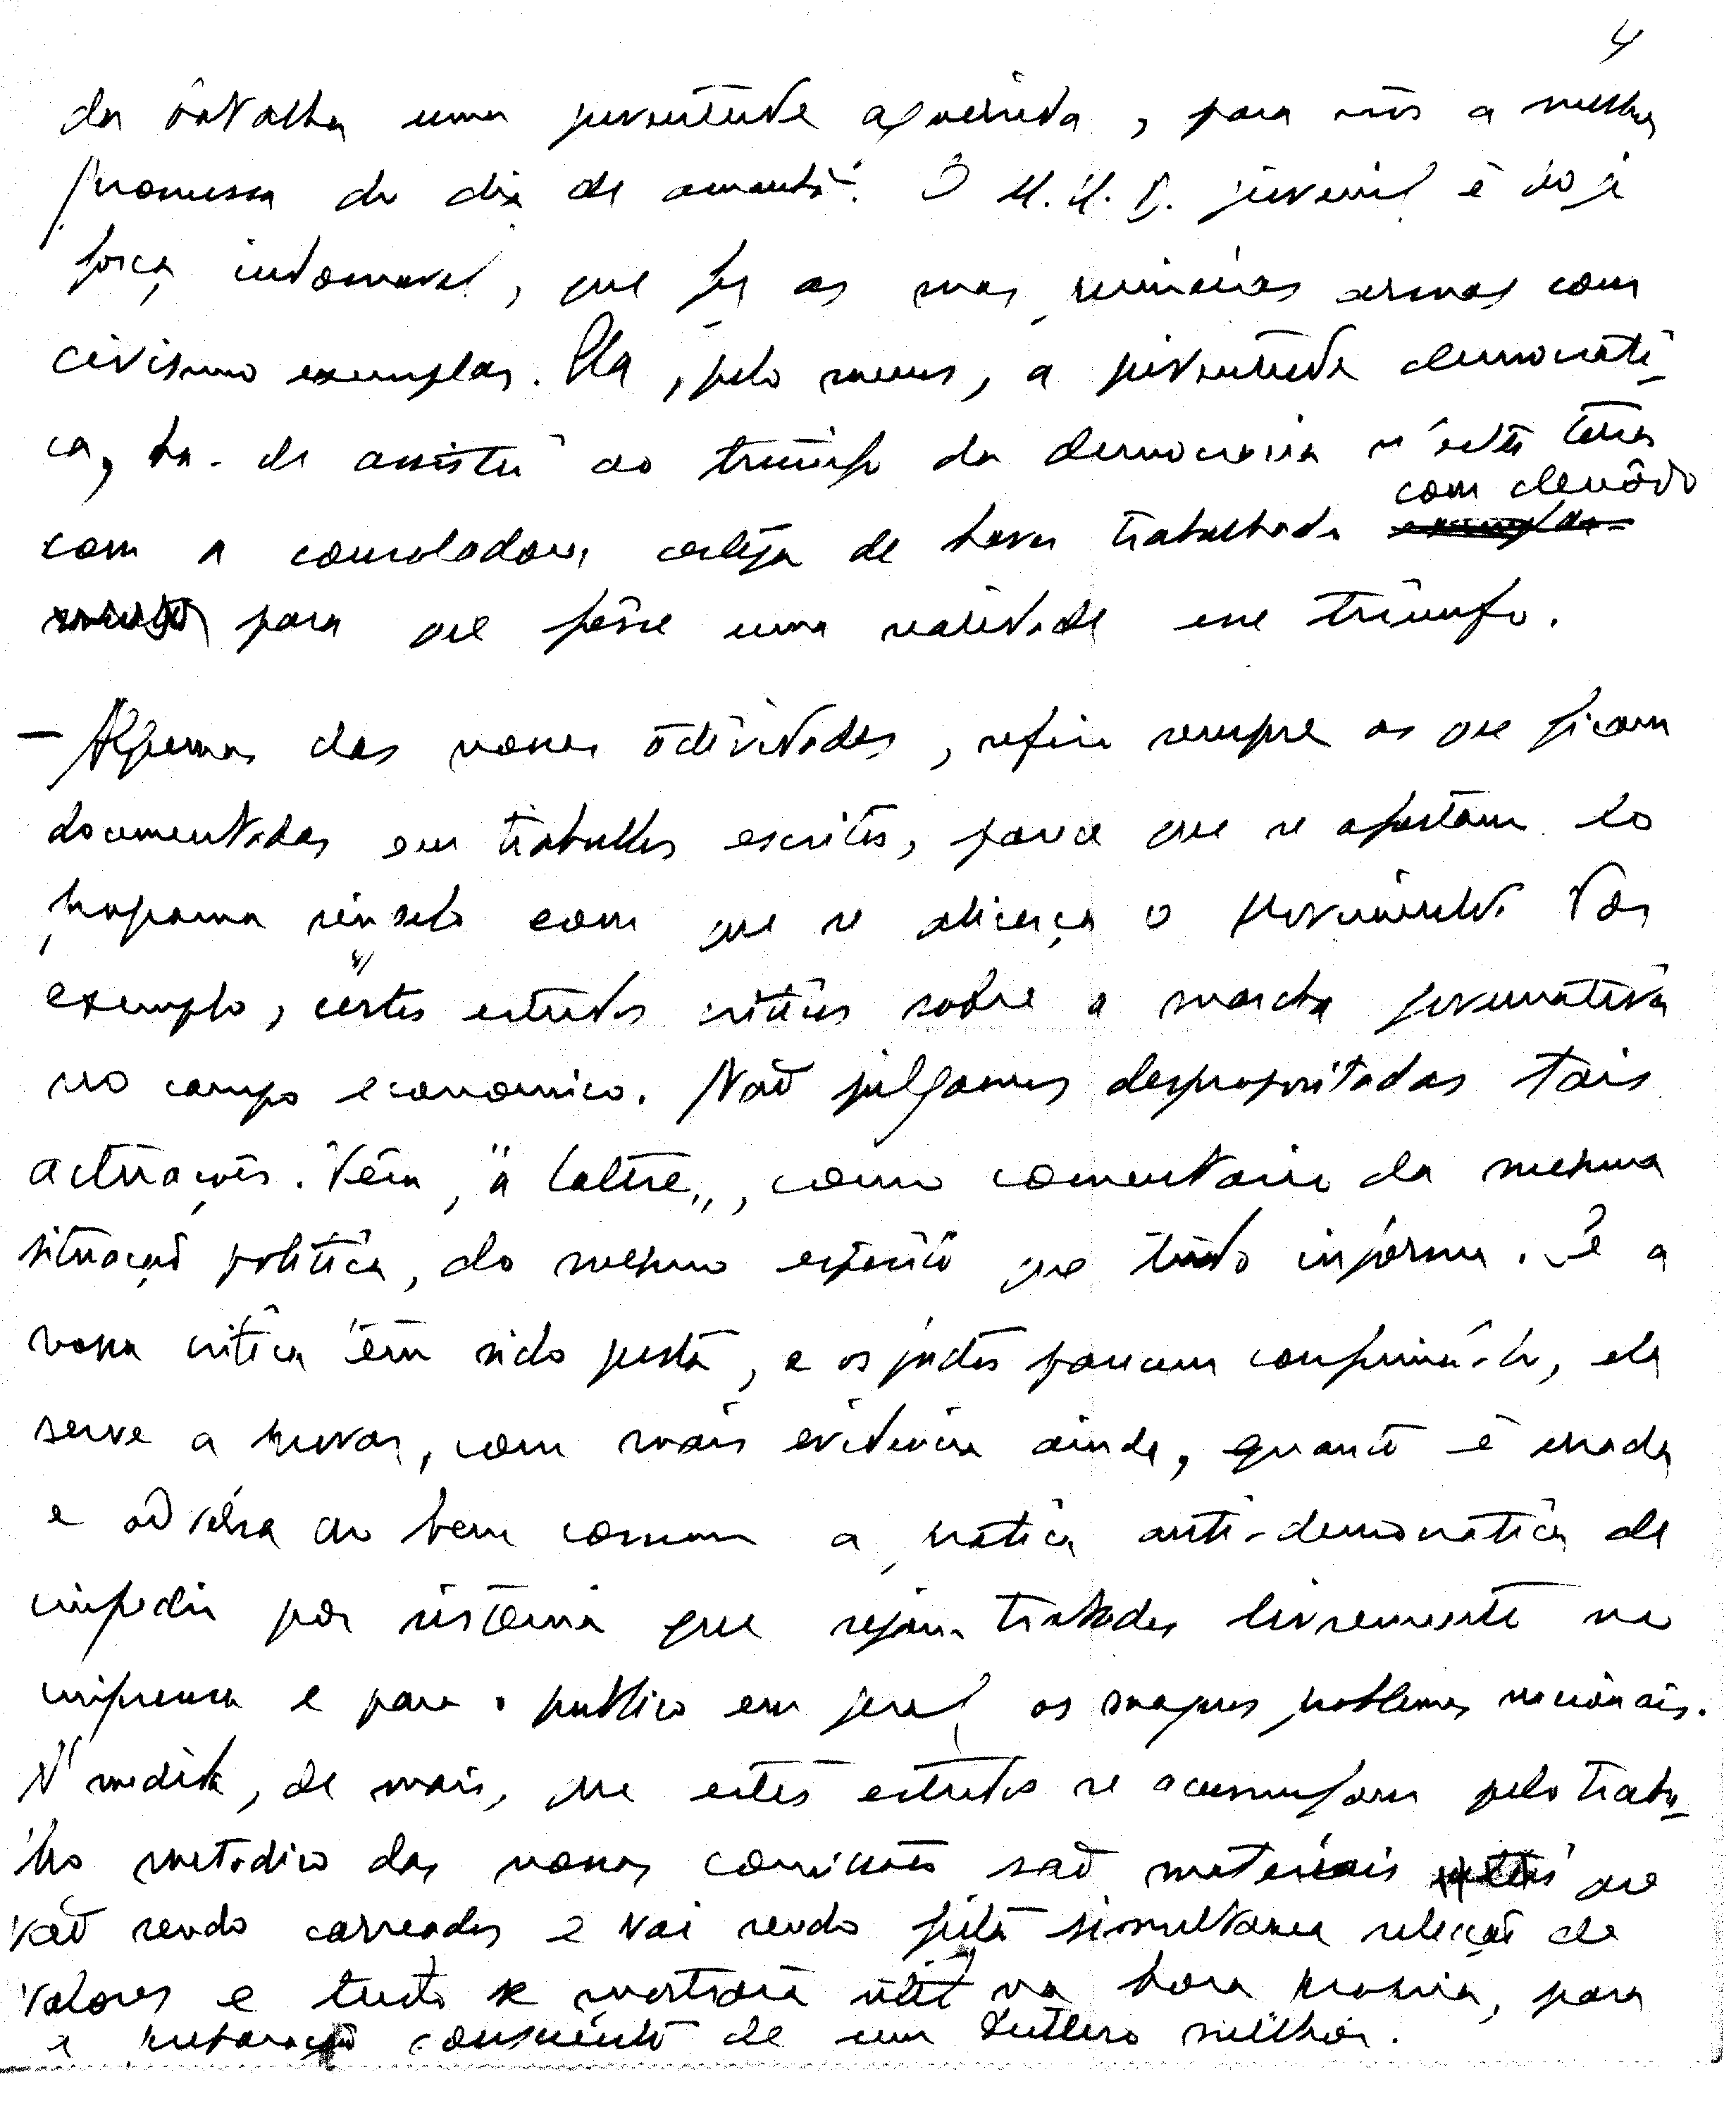 4
da batalha uma juventude aguerrida, para nós a melhor
promessa do dia de amanhã. O M.U.D. juvenil é hoje
força indomavel, que fez as suas primeiras armas com
civismo exemplar. Ela, pelo menos, a juventude democráti-
ca, ha-de assistir ao triunfo da democracia n'esta terra
com denôdo
com a consoladora certeza de haver trabalhado
para que fôsse uma realidade esse triunfo.
– Algumas das nossas actividades, refiro sempre as que ficam
documentadas em trabalhos escritos, parece que se afastam do
programa singelo com que se alicerça o Movimento. Por
exemplo, certos estudos criticos sobre a marcha governativa
no campo economico. Não julgamos despropositadas tais
actuações. Vêm, "à latere", como comentario da mesma
situação politica, do mesmo espirito que tudo infórma. Se a
nossa critica tem sido justa, e os factos parecem confirmá-lo, ela
serve a provar, com mais evidencia ainda, quanto é errada
e advérsa ao bem comum a prática anti-democratica de
impedir por sistema que sejam tratados livremente na
imprensa e para o publico em geral os magnos problemas nacionais.
N'medida, de mais, que estes estudos se acumulam pelo traba-
lho metodico das nossas comissões são materiais que
vão sendo carreados e vai sendo feita simultanea seleção de
valores e tudo se mostrará util na hora propria, para
a preparação consciente de um futuro melhor.